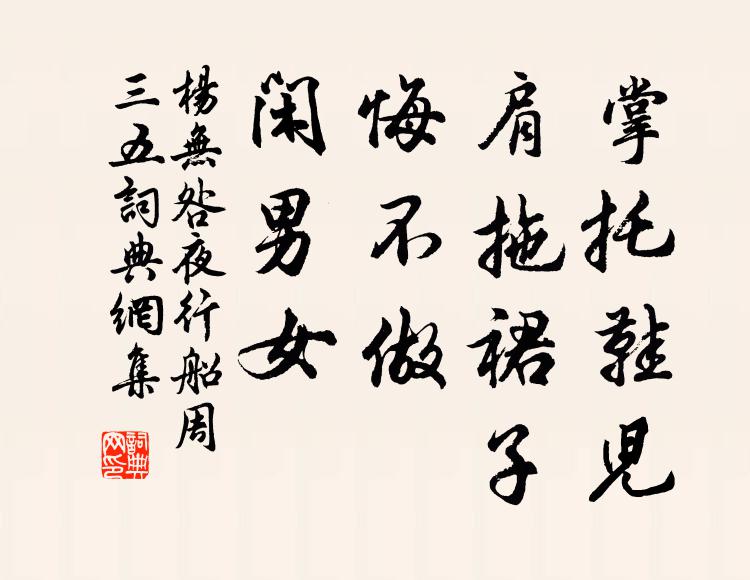 掌托鞋兒
肩拖裙子
悔不做
閑男女
楊無咎夜行船周
三五詞典網集
詞典
网印